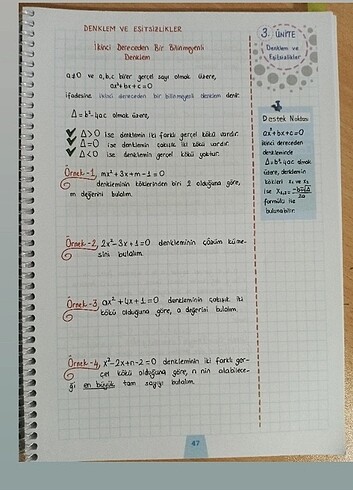 DENKLEM VE EŞİTSİZLİKLER
İkinci Dereceden Bir Bilinmeyenli
Denklem
a≠0 ve a,b,c birer gerçel sayı olmak üzere,
ax²+bx+c=0
ifadesine ikinci dereceden bir bilinmeyenli denklem denir.
Δ=b²-4ac olmak üzere,
Δ>0 ise denklemin iki farklı gerçel kökü vardır.
Δ=0 ise denklemin çakışık iki kökü vardır.
Δ<0 ise denklemin gerçel kökü yoktur.
Örnek-1, mx²+3x+m-1=0
denkleminin köklerinden biri 2 olduğuna göre,
m değerini bulalım.
Örnek-2, 2x²-3x+1=0 denkleminin çözüm küme-
sini bulalım.
Örnek-3, ax²+4x+1=0 denkleminin çakışık iki
kökü olduğuna göre, a değerini bulalım.
Örnek-4, x²-2x+n-2=0 denkleminin iki farklı ger-
çel kökü olduğuna göre, n nin alabilece-
ği en büyük tam sayıyı bulalım.
3. ÜNİTE
Denklem ve
Eşitsizlikler
Destek Noktası
ax²+bx+c=0
ikinci dereceden
denkleminde
Δ=b²-4ac olmak
üzere, denklemin
kökleri x₁ ve x₂
ise x₁,₂=(-b±√Δ)/2a
formülü ile
bulunabilir.
47